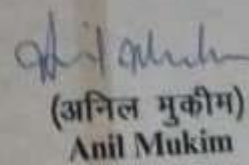 (अनिल मुकीम)
Anil Mukim